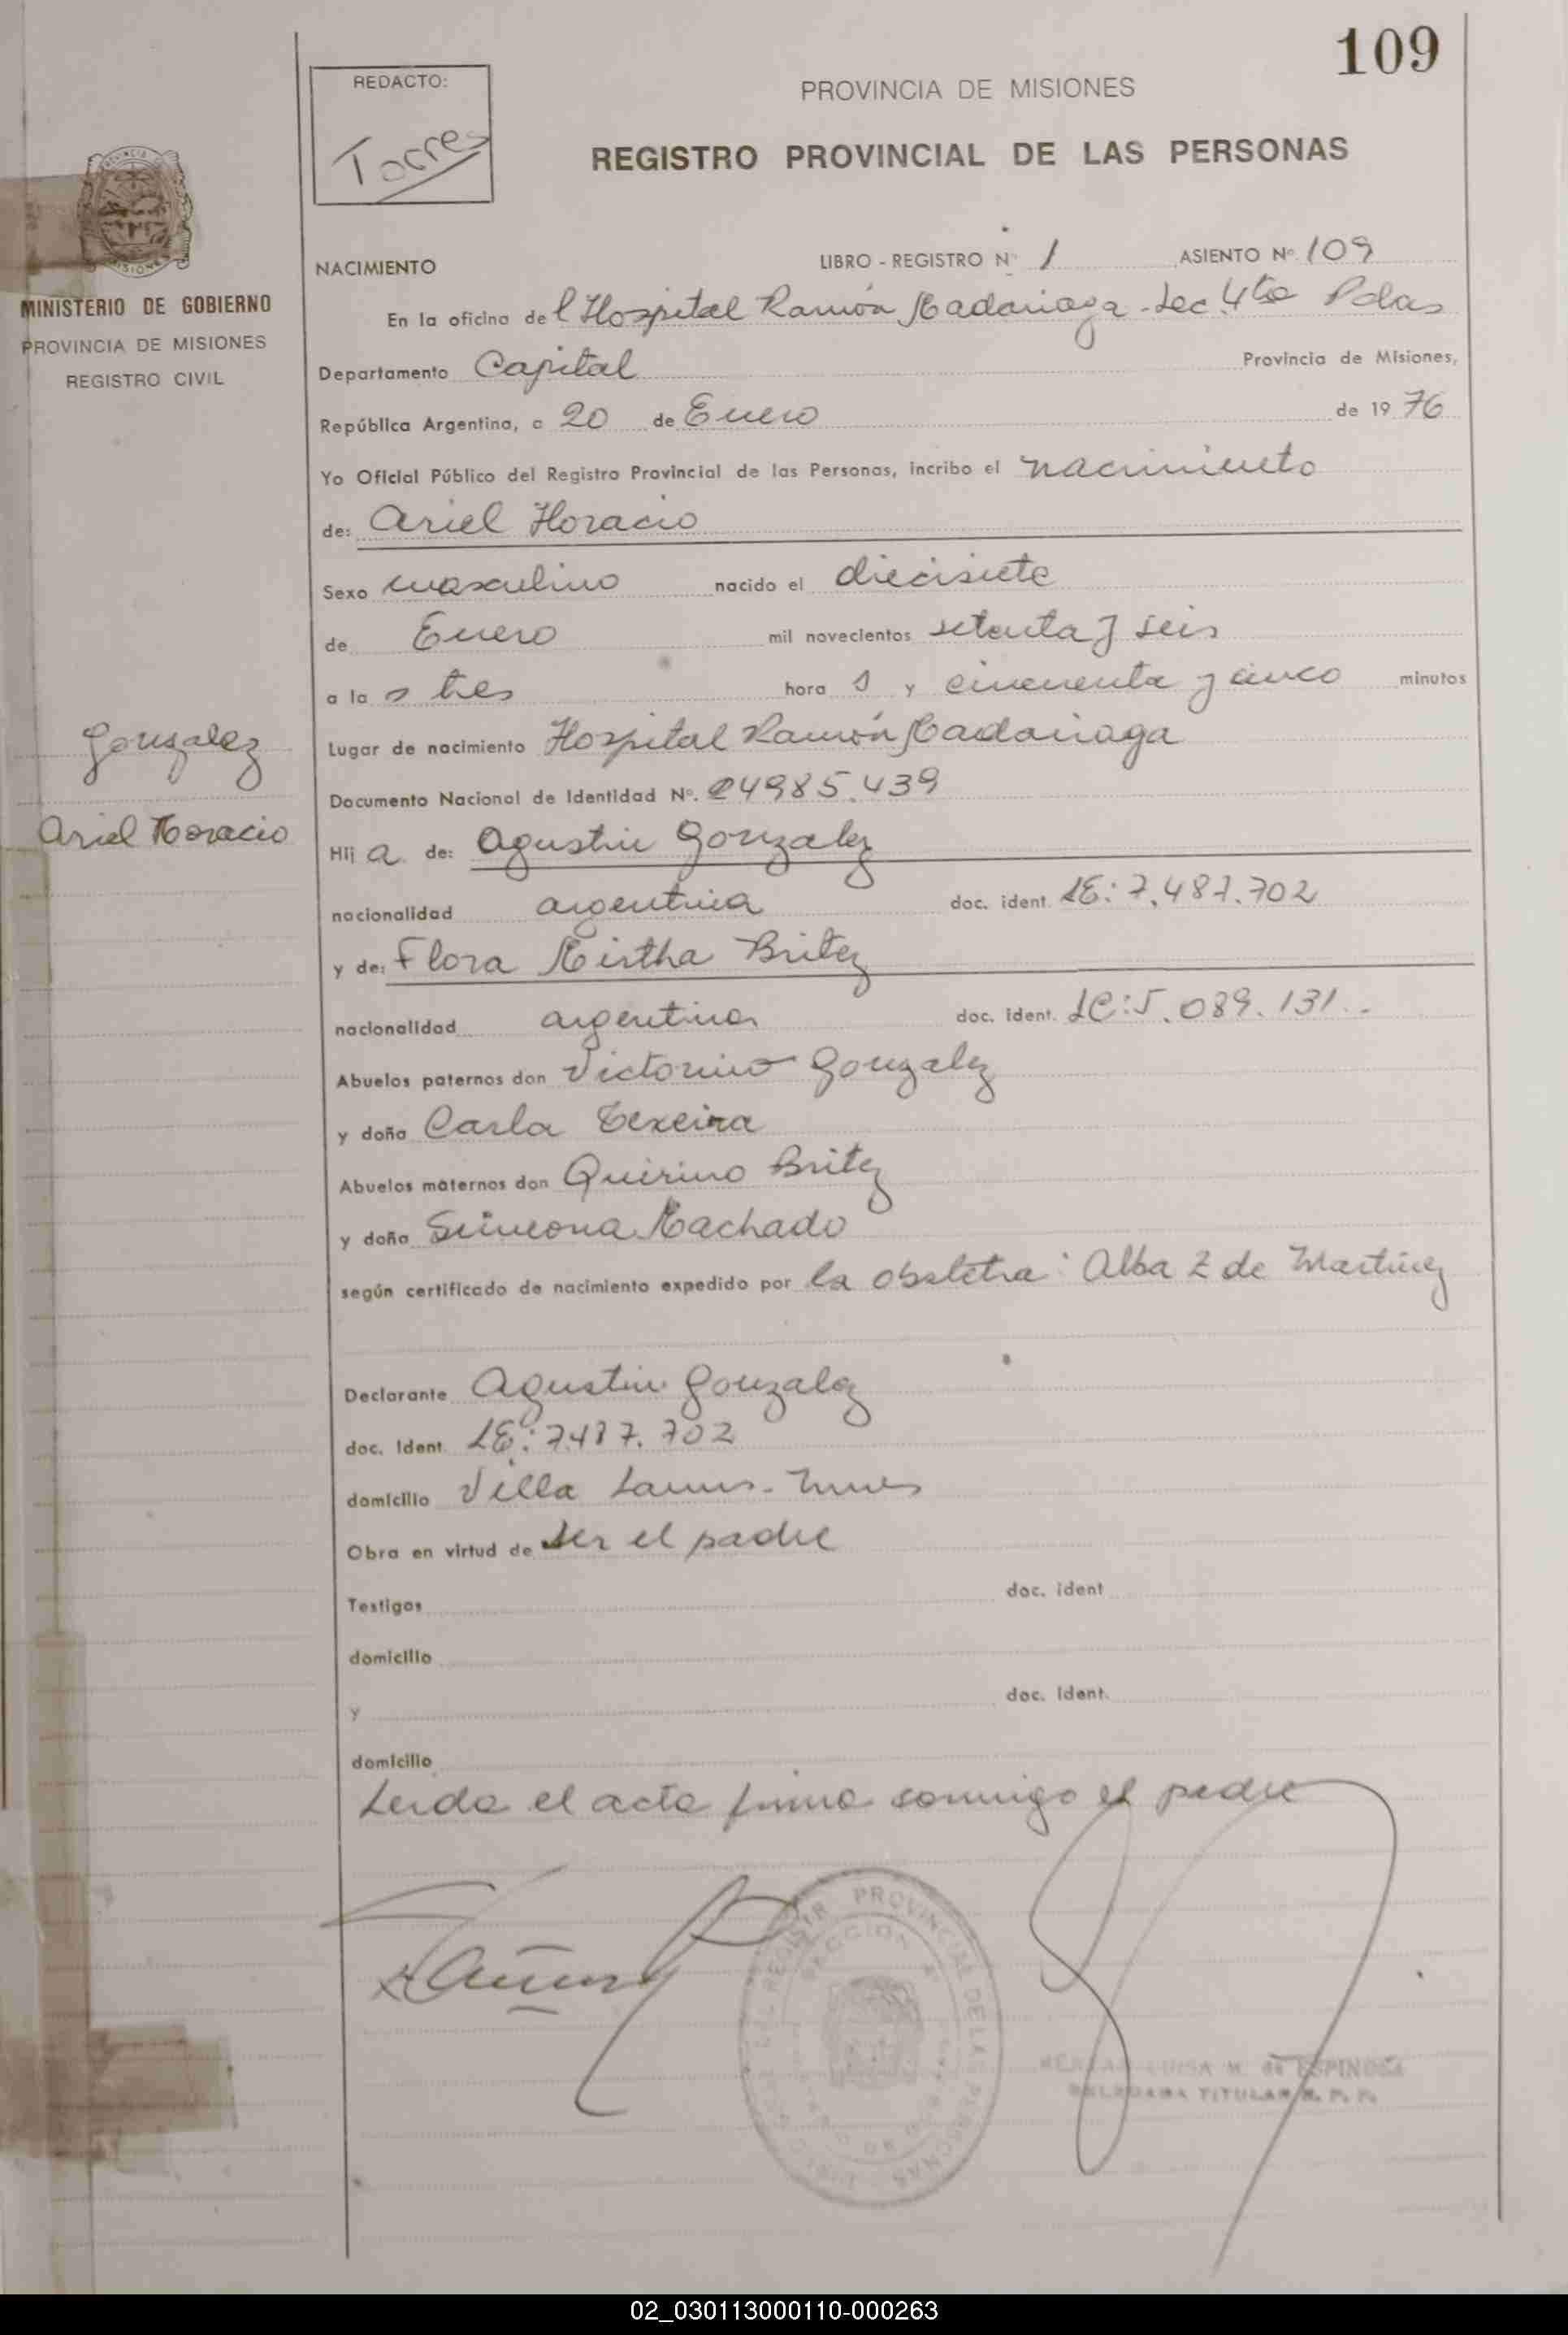 109
REDACTO:
Torres
PROVINCIA DE MISIONES
REGISTRO PROVINCIAL DE LAS PERSONAS
MISIONES
MINISTERIO DE GOBIERNO
PROVINCIA DE MISIONES
REGISTRO CIVIL
NACIMIENTO LIBRO - REGISTRO Nº 1 ASIENTO Nº 109
En la oficina del Hospital Ramón Madariaga - Sec. 4ta Pdas
Departamento Capital Provincia de Misiones,
República Argentina, a 20 de Enero de 1976
Yo Oficial Público del Registro Provincial de las Personas, incribo el nacimiento
de: Ariel Horacio
Sexo masculino nacido el diecisiete
de Enero mil novecientos setenta y seis
a las tres horas y cincuenta y cinco minutos
Lugar de nacimiento Hospital Ramón Madariaga
Gonzalez
Ariel Horacio
Documento Nacional de Identidad Nº. 24985.439
Hij a de: Agustin Gonzalez
nacionalidad argentina doc. ident. LE: 7.487.702
y de: Flora Mirtha Britez
nacionalidad argentina doc. ident. LC: 5.089.131.-
Abuelos paternos don Victorino Gonzalez
y doña Carla Texeira
Abuelos maternos don Quirino Britez
y doña Simeona Machado
según certificado de nacimiento expedido por la obstetra: Alba Z de Martinez
Declarante Agustin Gonzalez
doc. Ident. LE: 7.487.702
domicilio Villa Lanus - Mnes
Obra en virtud de ser el padre
Testigos doc. ident
domicilio
y doc. Ident.
domicilio
Leida el acta firma conmigo el padre
REGISTR PROVINCIAL DE LAS PERSONAS
SECCION 4
LUISA M. de ESPINOSA
DELEGADA TITULAR R. P. P.
02_030113000110-000263